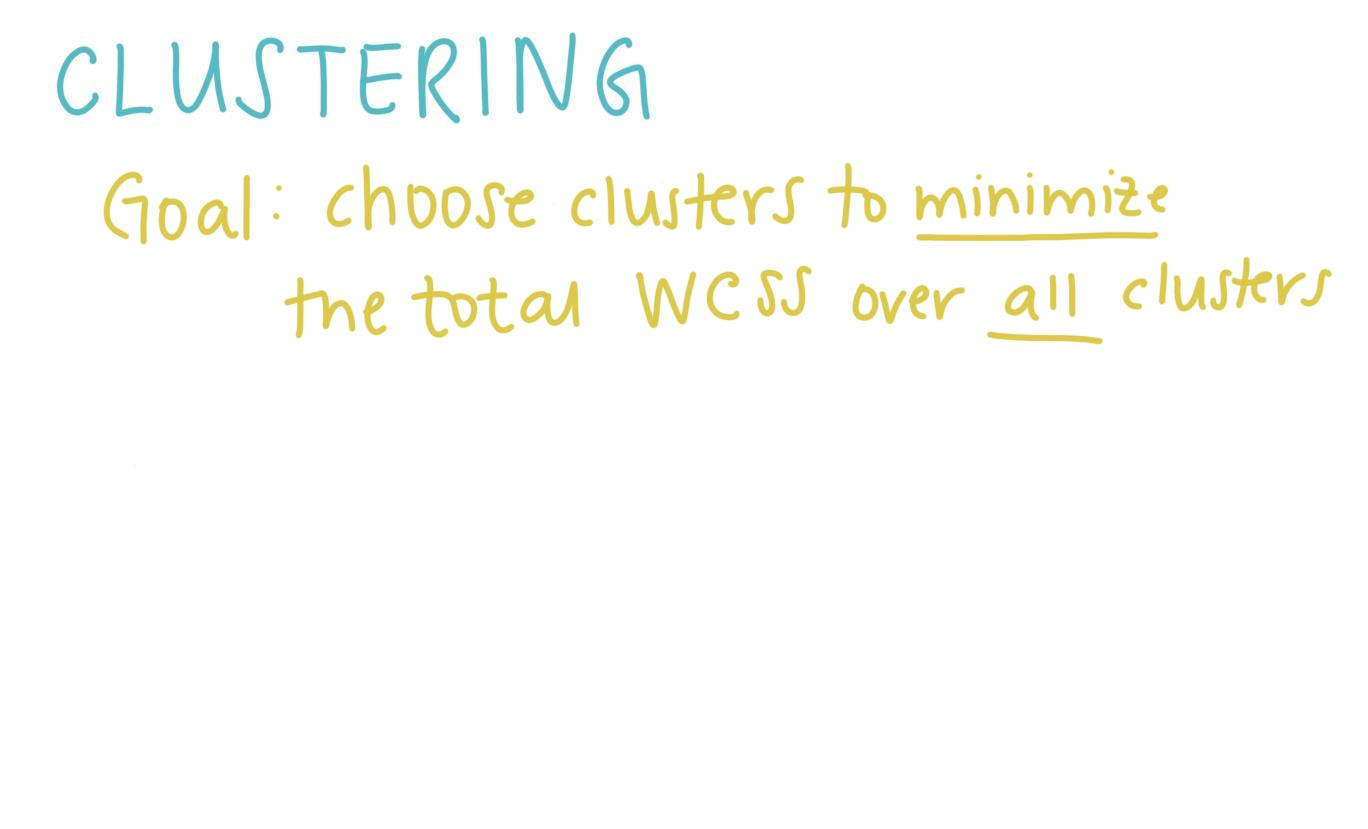 CLUSTERING
Goal: choose clusters to minimize
the total WCSS over all clusters